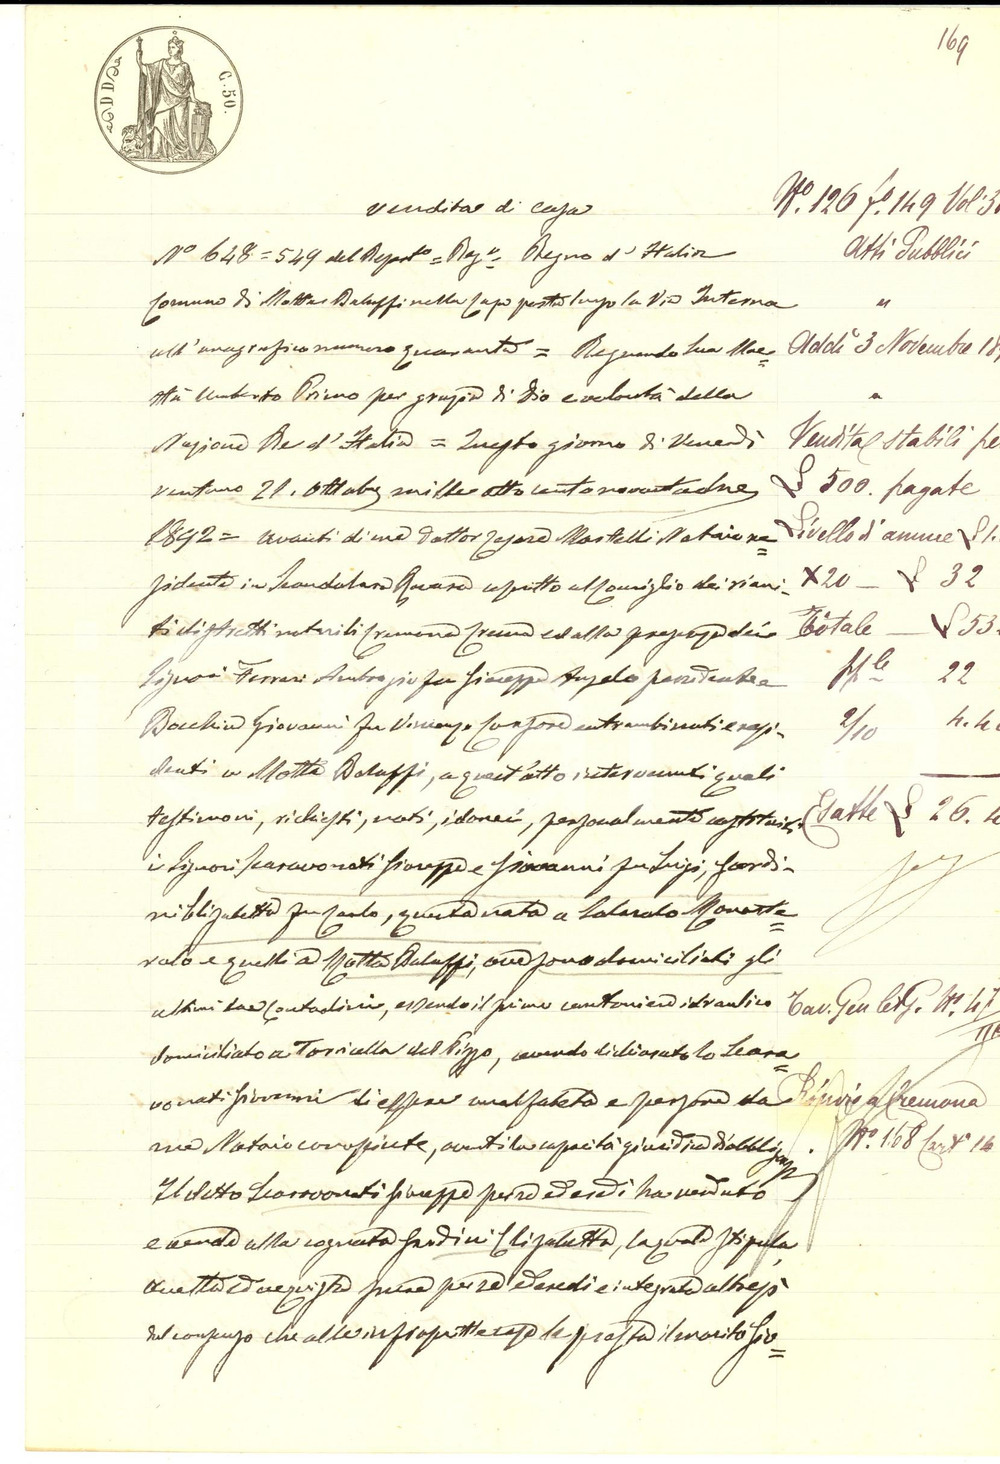 169
C. 50.
Vendita di casa
N.° 126 f.° 149 Vol: 3
N° 648 = 549 del Repert° = Reg.° Regno d'Italia
Atti Pubblici
Comune di Motta Baluffi nella casa posta lungo la Via Interna
"
all'anagrafico numero quaranta = Regnando Sua Mae=
Addì 3 Novembre 18
stà Umberto Primo per grazia di Dio e volontà della
"
Nazione Re d'Italia = Questo giorno di Venerdì
Vendita stabili pe
ventuno 21. Ottobre mille otto cento novantadue
£ 500. pagate
1892 = avanti di me Dottor Cesare Martelli Notaio re=
Livello d'annue £ 1.
sidente in Scandolara Ravara ascritto al Consiglio dei riuni-
X 20 — £ 32
ti distretti notarili Cremona Crema ed alla presenza dei
Totale — £ 53
Signori Ferrari Ambrogio fu Giuseppe Angelo possidente e
22
Bocchia Giovanni fu Vincenzo entrambi nati e resi-
2/10 4.4
denti a Motta Baluffi, a quest'atto intervenuti quali
testimoni, richiesti, noti, idonei, personalmente costituiti
Esatte £ 26. 4
i Signori Scaravonati Giuseppe e Giovanni fu Luigi, Gardi-
ni Elisabetta fu Carlo, questa nata a Solarolo Monaste=
rolo e quelli a Motta Baluffi, ove sono domiciliati gli
ultimi due Contadini, essendo il primo cantoniere idraulico
Tav. Gen N.° 47
domiciliato a Torricella del Pizzo, avendo dichiarato lo Scara=
vonati Giovanni di essere analfabeta e persone da
Cremona
me Notaio conosciute, aventi la capacità giuridica d'obbligarsi.
N.° 168 Cart.° 14
Il detto Scaravonati Giuseppe per sé ed eredi ha venduto
e vende alla cognata Gardini Elisabetta, la quale stipula
accetta ed acquista per sé ed eredi e integrata altresì
del consenso che alle infrascritte cose le presta il marito Gio=